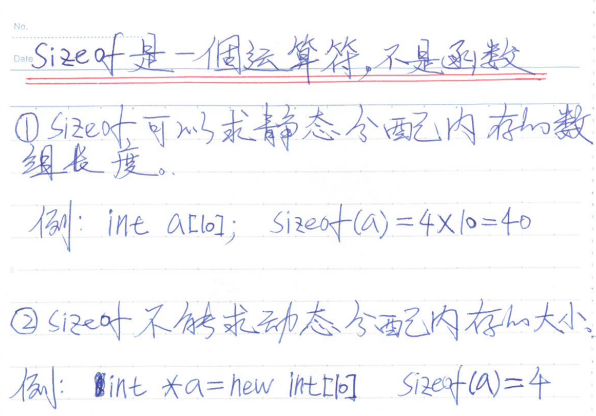 No.
Date
sizeof是一個运算符,不是函数
① sizeof,可以求静态分配内存的数
组长度。
例: int a[10]; sizeof(a)=4×10=40
② sizeof 不能求动态分配内存的大小。
例: int *a=new int[10] sizeof(a)=4